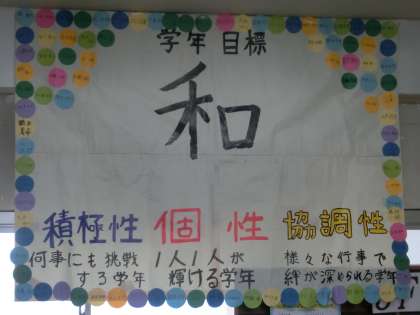 学年目標
和
積極性 個性 協調性
何事にも挑戦 1人1人が 様々な行事で
する学年 輝ける学年 絆が深められる学年